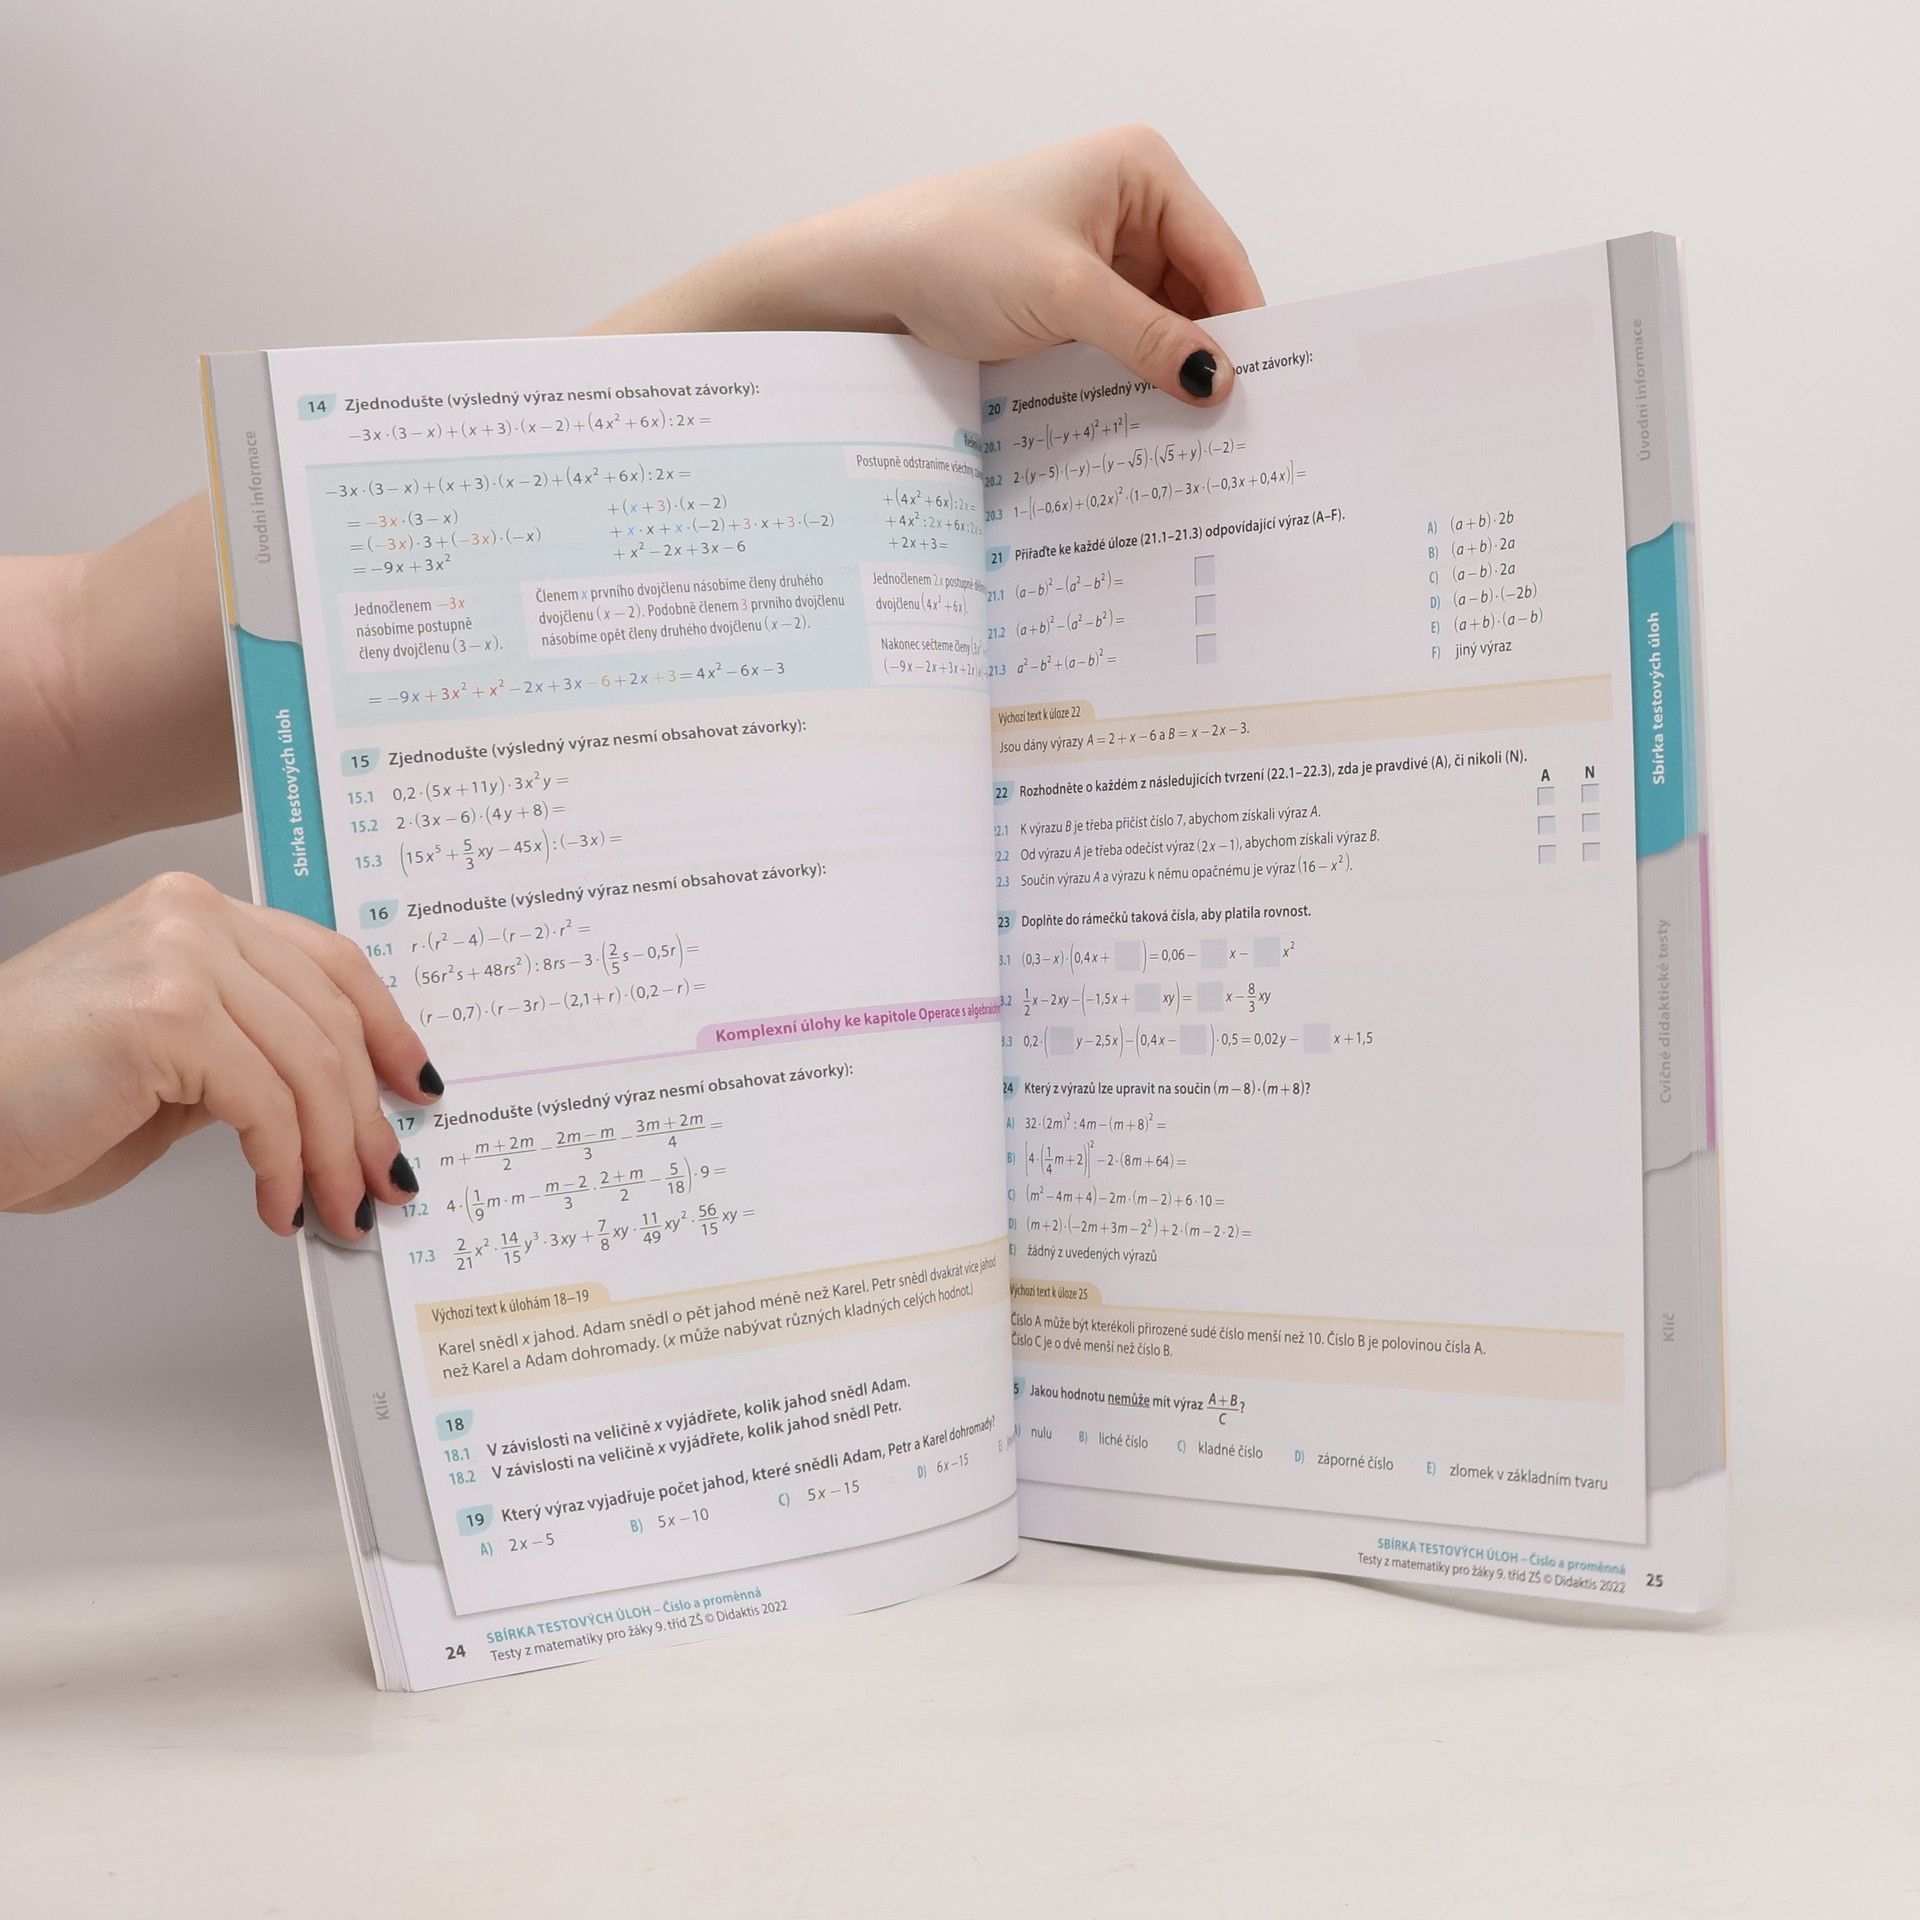 Úvodní informace
Sbírka testových úloh
Klíč
14 Zjednodušte (výsledný výraz nesmí obsahovat závorky):
−3x·(3−x)+(x+3)·(x−2)+(4x²+6x):2x=
−3x·(3−x)+(x+3)·(x−2)+(4x²+6x):2x=
Postupně odstraníme všechny
=−3x·(3−x) +(x+3)·(x−2) +(4x²+6x):2x=
=(−3x)·3+(−3x)·(−x) +x·x+x·(−2)+3·x+3·(−2) +4x²:2x+6x:2x=
=−9x+3x² +x²−2x+3x−6 +2x+3=
Jednočlenem −3x
násobíme postupně
členy dvojčlenu (3−x).
Členem x prvního dvojčlenu násobíme členy druhého
dvojčlenu (x−2). Podobně členem 3 prvního dvojčlenu
násobíme opět členy druhého dvojčlenu (x−2).
Jednočlenem 2x postupně
dvojčlenu (4x²+6x).
Nakonec sečteme členy
(−9x−2x+3x+2x)
=−9x+3x²+x²−2x+3x−6+2x+3=4x²−6x−3
15 Zjednodušte (výsledný výraz nesmí obsahovat závorky):
15.1 0,2·(5x+11y)·3x²y=
15.2 2·(3x−6)·(4y+8)=
15.3 (15x⁵+5/3xy−45x):(−3x)=
16 Zjednodušte (výsledný výraz nesmí obsahovat závorky):
16.1 r·(r²−4)−(r−2)·r²=
.2 (56r²s+48rs²):8rs−3·(2/5s−0,5r)=
(r−0,7)·(r−3r)−(2,1+r)·(0,2−r)=
Komplexní úlohy ke kapitole Operace s
17 Zjednodušte (výsledný výraz nesmí obsahovat závorky):
.1 m+(m+2m)/2−(2m−m)/3−(3m+2m)/4=
17.2 4·(1/9m·m−(m−2)/3·(2+m)/2−5/18)·9=
17.3 2/21x²·14/15y³·3xy+7/8xy·11/49xy²·56/15xy=
Výchozí text k úlohám 18–19
Karel snědl x jahod. Adam snědl o pět jahod méně než Karel. Petr snědl dvakrát více jahod
než Karel a Adam dohromady. (x může nabývat různých kladných celých hodnot.)
18
18.1 V závislosti na veličině x vyjádřete, kolik jahod snědl Adam.
18.2 V závislosti na veličině x vyjádřete, kolik jahod snědl Petr.
19 Který výraz vyjadřuje počet jahod, které snědli Adam, Petr a Karel dohromady?
A) 2x−5 B) 5x−10 C) 5x−15 D) 6x−15
24 SBÍRKA TESTOVÝCH ÚLOH – Číslo a proměnná
Testy z matematiky pro žáky 9. tříd ZŠ © Didaktis 2022
20 Zjednodušte (výsledný závorky):
20.1 −3y−[(−y+4)²+1²]=
20.2 2·(y−5)·(−y)−(y−√5)·(√5+y)·(−2)=
20.3 1−[(−0,6x)+(0,2x)²·(1−0,7)−3x·(−0,3x+0,4x)]=
21 Přiřaďte ke každé úloze (21.1–21.3) odpovídající výraz (A–F).
21.1 (a−b)²−(a²−b²)=
21.2 (a+b)²−(a²−b²)=
21.3 a²−b²+(a−b)²=
A) (a+b)·2b
B) (a+b)·2a
C) (a−b)·2a
D) (a−b)·(−2b)
E) (a+b)·(a−b)
F) jiný výraz
Výchozí text k úloze 22
Jsou dány výrazy A=2+x−6 a B=x−2x−3.
22 Rozhodněte o každém z následujících tvrzení (22.1–22.3), zda je pravdivé (A), či nikoli (N).
A N
2.1 K výrazu B je třeba přičíst číslo 7, abychom získali výraz A.
2.2 Od výrazu A je třeba odečíst výraz (2x−1), abychom získali výraz B.
2.3 Součin výrazu A a výrazu k němu opačnému je výraz (16−x²).
23 Doplňte do rámečků taková čísla, aby platila rovnost.
3.1 (0,3−x)·(0,4x+ )=0,06− x− x²
3.2 1/2x−2xy−(−1,5x+ xy)= x−8/3xy
3.3 0,2·( y−2,5x)−(0,4x− )·0,5=0,02y− x+1,5
24 Který z výrazů lze upravit na součin (m−8)·(m+8)?
A) 32·(2m)²:4m−(m+8)²=
B) [4·(1/4m+2)]²−2·(8m+64)=
C) (m²−4m+4)−2m·(m−2)+6·10=
D) (m+2)·(−2m+3m−2²)+2·(m−2·2)=
E) žádný z uvedených výrazů
Výchozí text k úloze 25
Číslo A může být kterékoli přirozené sudé číslo menší než 10. Číslo B je polovinou čísla A.
Číslo C je o dvě menší než číslo B.
5 Jakou hodnotu nemůže mít výraz (A+B)/C?
A) nulu B) liché číslo C) kladné číslo D) záporné číslo E) zlomek v základním tvaru
SBÍRKA TESTOVÝCH ÚLOH – Číslo a proměnná
Testy z matematiky pro žáky 9. tříd ZŠ © Didaktis 2022 25
Úvodní informace
Sbírka testových úloh
Cvičné didaktické testy
Klíč